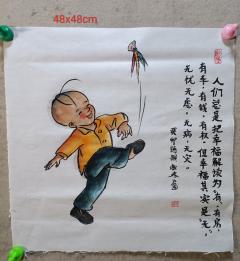 48x48cm
人们总是把幸福解读为“有”,有房,
有车,有钱,有权,但幸福其实是“无”,
无忧无虑,无病,无灾。
癸卯